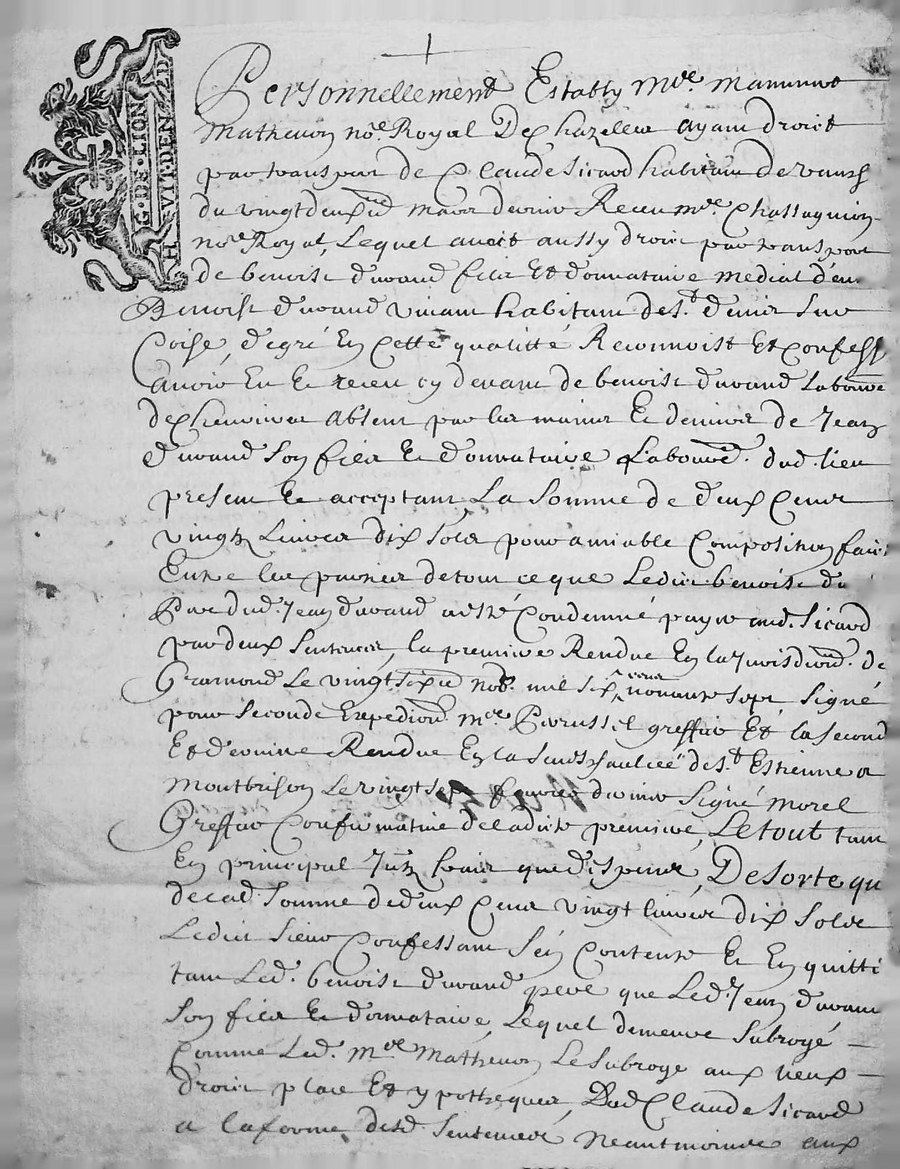 G·DE·LION
H VIT·DEN·
Personnellement Estably Me.
Mathevon nore. Royal De Chazelles ayant droict
par transport de Claude Sicard habitant de
du vingt deuxie. mars dernier Receu Me. Chassagnion
nore. Royal, Lequel avoit aussy droit par transport
de benoist durand fils Et donnataire medial d'un
Benoist durand vivant habitant de St. denis sur
Coise, de gré En Cette qualitté Reconnoist Et Confesse
avoir Eu Et receu cy devant de benoist durand Laboure.
de absent par les mains Et deniers de Jean
durand Son fils Et donnataire Laboure. dud. lieu
present Et acceptant, La Somme de deux Cens
vingt Livres dix Sols pour amiable Composition faite
Entre les parties de tout ce que Ledict benoist du
Pere dud. Jean durand a esté Condemné payer aud. Sicard
par deux Sentences, la premiere Rendue En la Jurisdion. de
Gramond Le vingt sixie. nob. mil six cens nonante sept Signé
pour seconde Expedion. Me. greffier Et la second
Et derniere Rendue En la de St. Estienne a
Montbrison Le vingt sept fevrier dernier Signé Morel
Greffier Confirmative de ladite premiere, Le tout tant
En principal que despens, De sorte qu
de cad. Somme de deux Cens vingt livres dix Sols
Ledict Sieur Confessant S'en Contente Et En quitte
tant Led. benoist durand pere que Led. Jean durand
Son fils Et donnataire, Lequel demeure Subrogé –
Comme Led. Me. Mathevon Le Subroge aux lieux –
droit place Et ypotheques, Dud. Claude Sicard
a la forme desd. Sentences Neantmoins aux